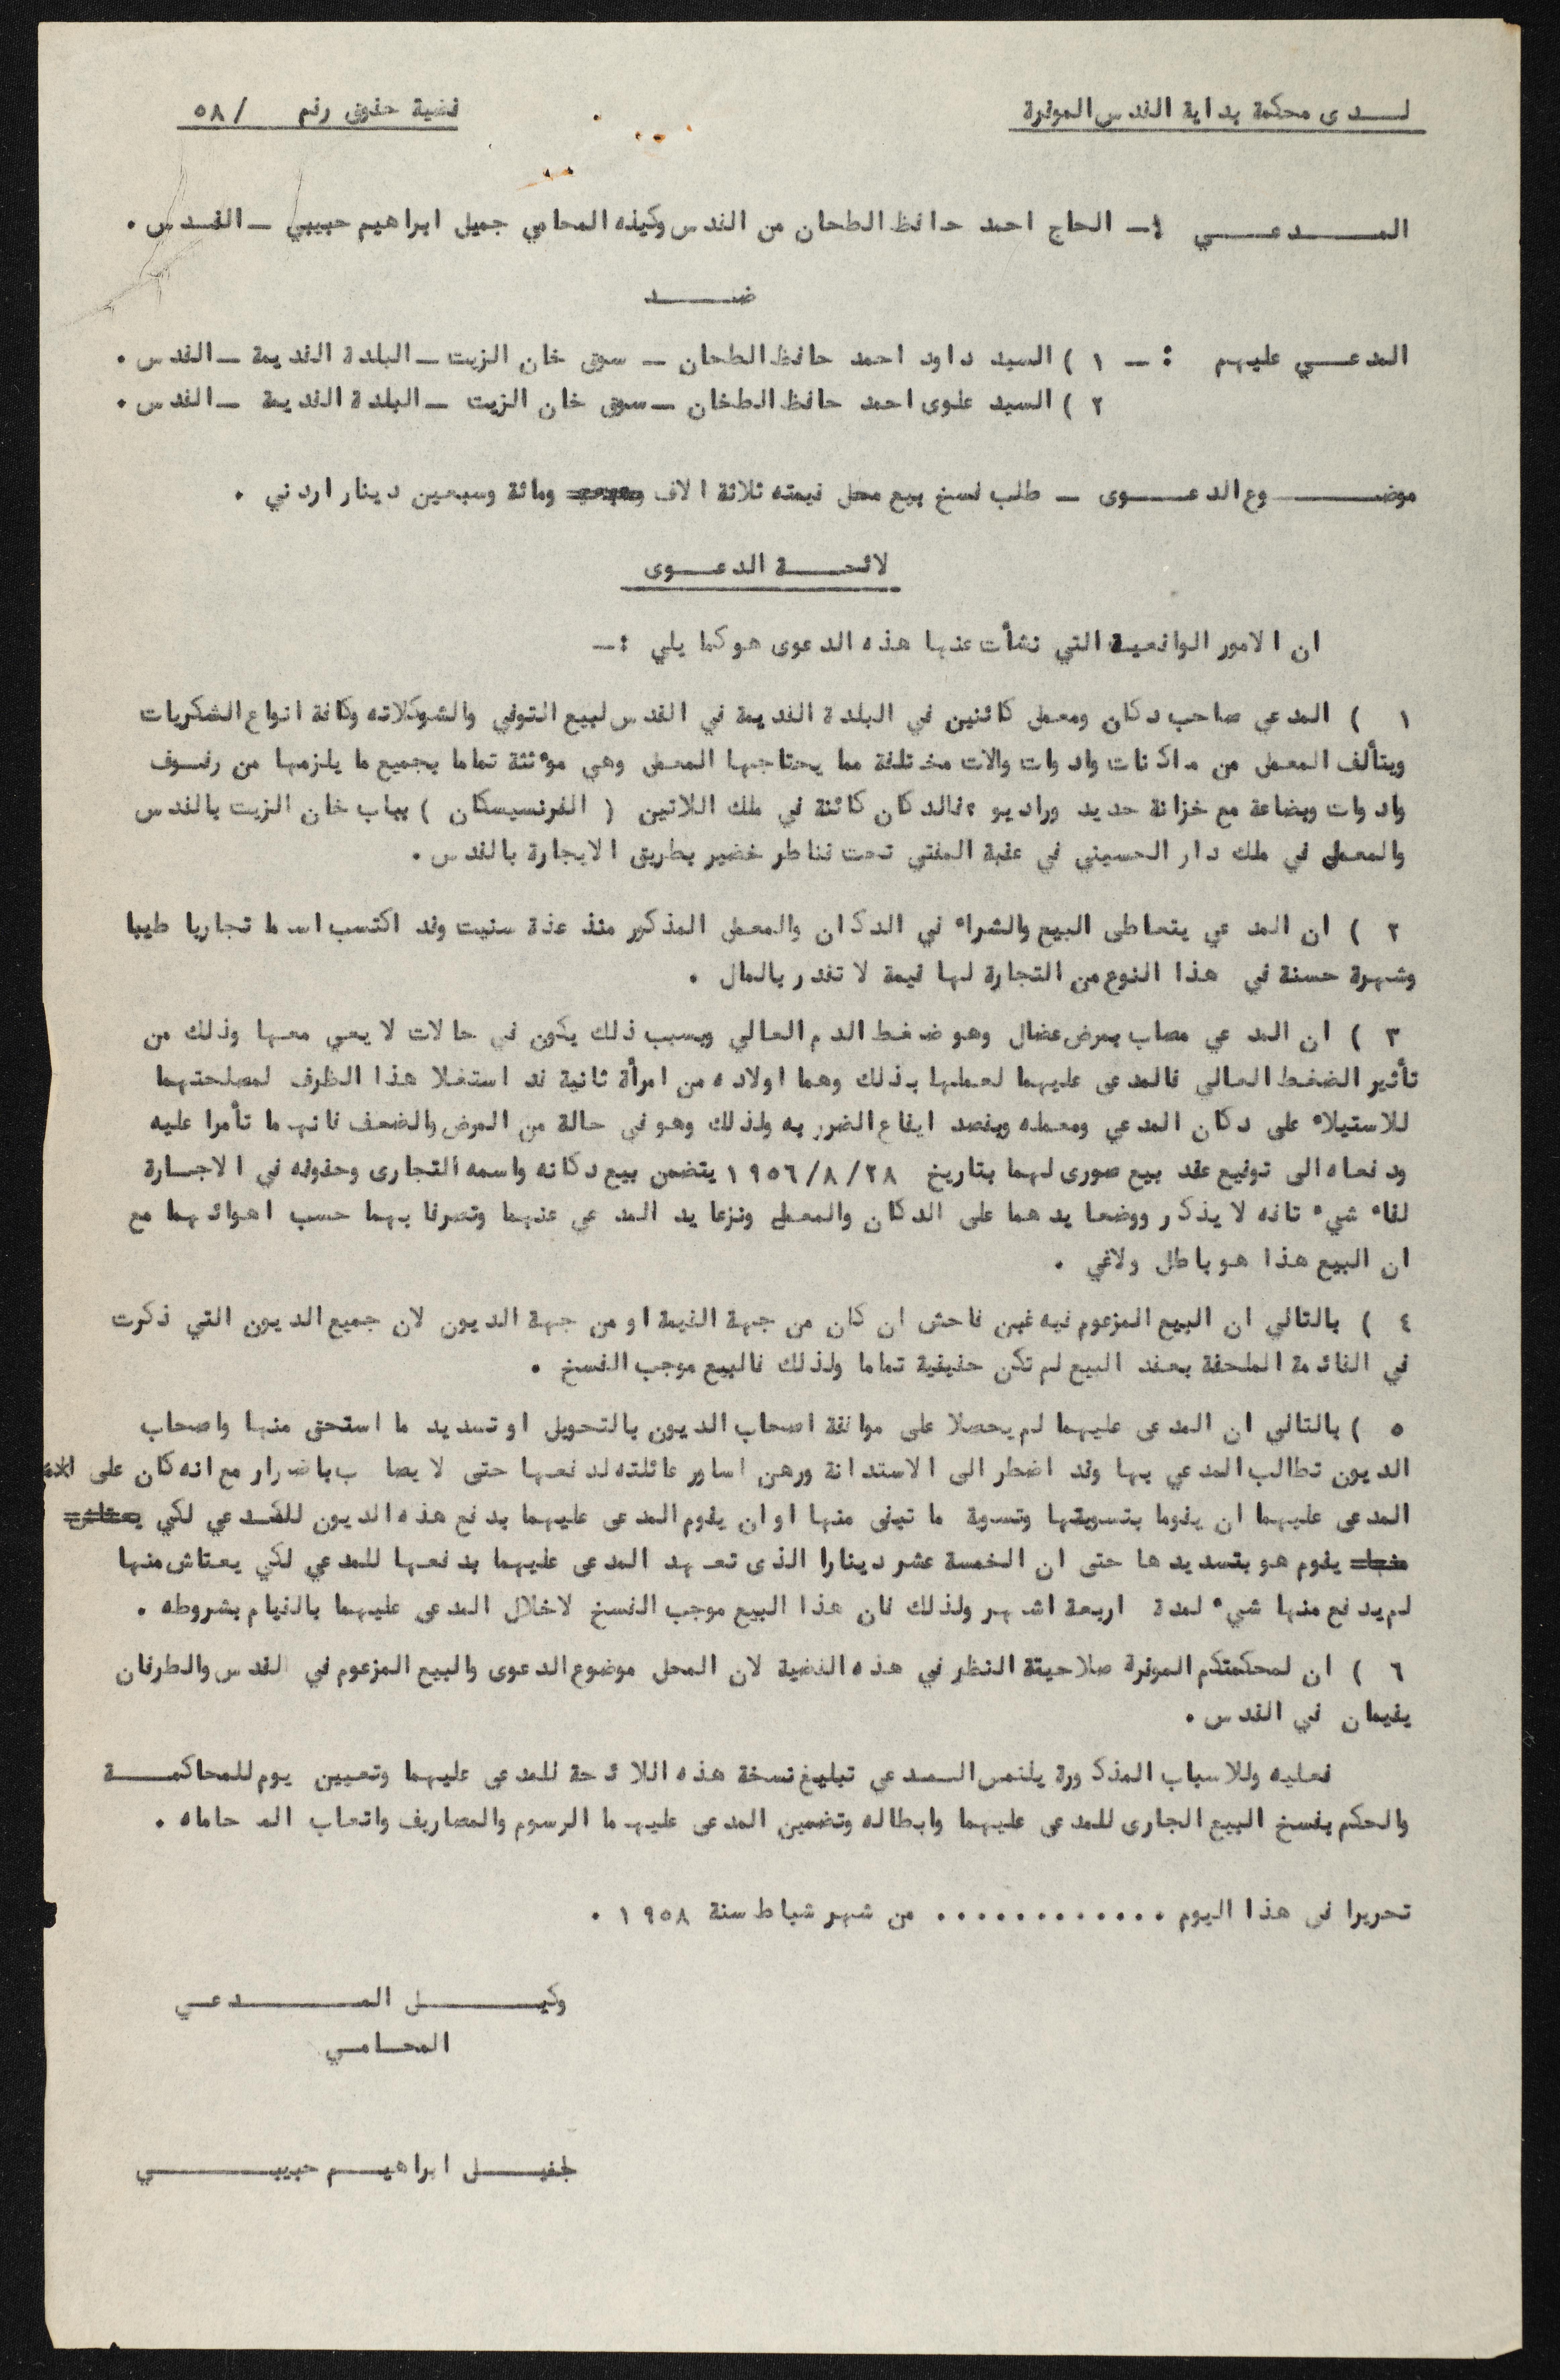 لـــدى محكمة بداية القدس الموقرة
قضية حقوق رقم    / ٥٨
المـــــدعـــــي :ـ الحاج احمد حافظ الطحان من القدس وكيله المحامي جميل ابراهيم حبيبي ـ القـدس .
ضــــد
المدعـــي عليهم : ـ ١ ) السيد داود احمد حافظ الطحان ـ سوق خان الزيت ـ البلدة القديمة ـ القدس .
٢ ) السيد علوى احمد حافظ الطخان ـ سوق خان الزيت ـ البلدة القديمة ـ القدس .
موضـــــوع الدعـــــوى ـ طلب فسخ بيع محل قيمته ثلاثة الاف ومائة وسبعين دينار اردني .
لائحـــة الدعــوى
ان الامور الواقعية التي نشأت عنها هذه الدعوى هو كما يلي :ـ
١ ) المدعي صاحب دكان ومعمل كائنين في البلدة القديمة في القدس لبيع التوفي والشوكلاته وكافة انواع الشكريات
ويتألف المعمل من ماكنات وادوات والات مختلفة مما يحتاجها المعمل وهي مؤثثة تماما بجميع ما يلزمها من رفــوف
وادوات وبضاعة مع خزانة حديد وراديو ،فالدكان كائنة في ملك اللاتين ( الفرنسيسكان ) بباب خان الزيت بالقدس
والمعمل في ملك دار الحسيني في عقبة المفتي تحت قناطر خضير بطريق الايجارة بالقدس .
٢ ) ان المدعي يتعاطى البيع والشراء في الدكان والمعمل المذكور منذ عذة سنيت وقد اكتسب اسما تجاريا طيبا
وشهرة حسنة في هذا النوع من التجارة لها قيمة لا تقدر بالمال .
٣ ) ان المدعي مصاب بمرض عضال وهو ضغط الدم العالي وبسبب ذلك يكون في حالات لا يعي معها وذلك من
تأثير الضغط العالي فالمدعى عليهما لعملها بذلك وهما اولاده من امرأة ثانية قد استغلا هذا الظرف لمصلحتهما
للاستيلاء على دكان المدعي ومعمله وبقصد ايقاع الضرر به ولذلك وهو في حالة من المرض والضعف فانهما تأمرا عليه
ودفعاه الى توقيع عقد بيع صورى لهما بتاريخ ٢٨/ ٨/ ١٩٥٦ يتضمن بيع دكانه واسمه التجارى وحقوقه في الاجــارة
لقاء شيء تافه لا يذكر ووضعا يدهما على الدكان والمعمل ونزعا يد المدعي عنهما وتصرفا بهما حسب اهوائهما مع
ان البيع هذا هو باطل ولاغي .
٤ ) بالتالي ان البيع المزعوم فيه غبن فاحش ان كان من جهة القيمة او من جهة الديون لان جميع الديون التي ذكرت
في القائمة الملحقة بعقد البيع لم تكن حقيقية تماما ولذلك فالبيع موجب الفسخ .
٥ ) بالتالي ان المدعى عليهما لم يحصلا على موافقة اصحاب الديون بالتحويل او تسديد ما استحق منها واصحاب
الديون تطالب المدعي بها وقد اضطر الى الاستدانة ورهن اساور عائلته لدفعها حتى لا يصاب باضرار مع انه كان على
المدعى عليهما ان يقوما بتسويتها وتسوية ما تبقى منها او ان يقوم المدعى عليهما بدفع هذه الديون للمـدعي لكي
يقوم هو بتسديدها حتى ان الخمسة عشر دينارا الذى تعهد المدعى عليهما بدفعها للمدعي لكي يعتاش منها
لم يدفع منها شيء لمدة اربعة اشهر ولذلك فان هذا البيع موجب الفسخ لاخلال المدعى عليهما بالقيام بشروطه .
٦ ) ان لمحكمتكم الموقرة صلاحيتة النظر في هذه القضية لان المحل موضوع الدعوى والبيع المزعوم في القدس والطرفان
يقيمان في القدس .
فعليه وللاسباب المذكورة يلتمس المـدعي تبليغ نسخة هذه اللائحة للمدعى عليهما وتعيين يوم للمحاكمـــة
والحكم بفسخ البيع الجارى للمدعى عليهما وابطاله وتضمين المدعى عليهما الرسوم والمصاريف واتعاب المحاماه .
تحريرا في هذا اليوم ............ من شهر شباط سنة ١٩٥٨ .
وكيـــــل المـــــدعـي
المحــامـي
ابراهيـــم حبيبـــــي